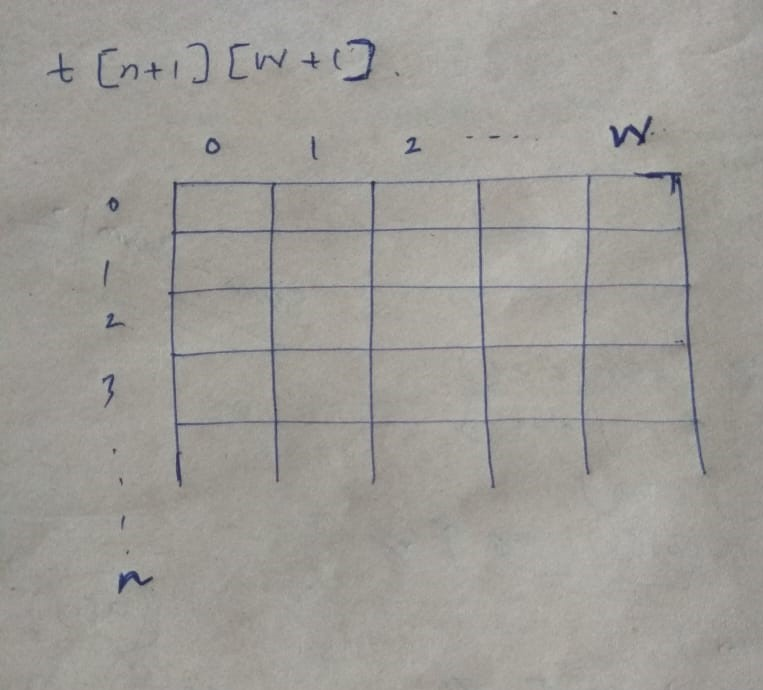 t [n+1] [W+1].
0 1 2 ---- W
0
1
2
3
n